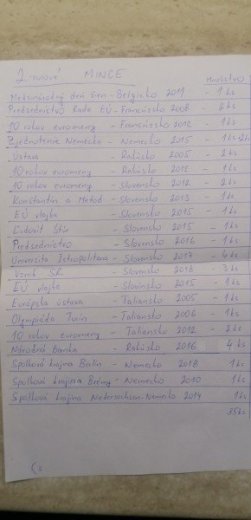 2-eurové MINCE Množstvo
Medzinárodný deň žien - Belgicko 2011 - 1 ks
Predsedníctvo Rade EÚ - Francúzsko 2008 - 2 ks
10 rokov euromeny - Francúzsko 2012 - 1 ks
Zjednotenie Nemecka - Nemecko 2015 - 1 ks
Ústava - Rakúsko 2005 - 2 ks
10 rokov euromeny - Rakúsko - 1 ks
10 rokov euromeny - Slovensko 2012 - 2 ks
Konštantín a Metod - Slovensko 2013 - 1 ks
EÚ vlajka - Slovensko 2015 - 1 ks
Ľudovít Štúr - Slovensko 2015 - 1 ks
Predsedníctvo - Slovensko 2016 - 1 ks
Univerzita Istropolitana - Slovensko 2017 - 4 ks
Vznik SR - Slovensko 2018 - 3 ks
EÚ vlajka - Slovensko 2015 - 1 ks
Európska ústava - Taliansko 2005 - 1 ks
Olympiáda Turín - Taliansko 2006 - 1 ks
10 rokov euromeny - Taliansko 2012 - 2 ks
Národná Banka - Rakúsko 2016 - 4 ks
Spolková krajina Berlín - Nemecko 2018 - 1 ks
Spolková krajina Brémy - Nemecko 2010 - 1 ks
Spolková krajina Niedersachsen - Nemecko 2014 1 ks
35 ks